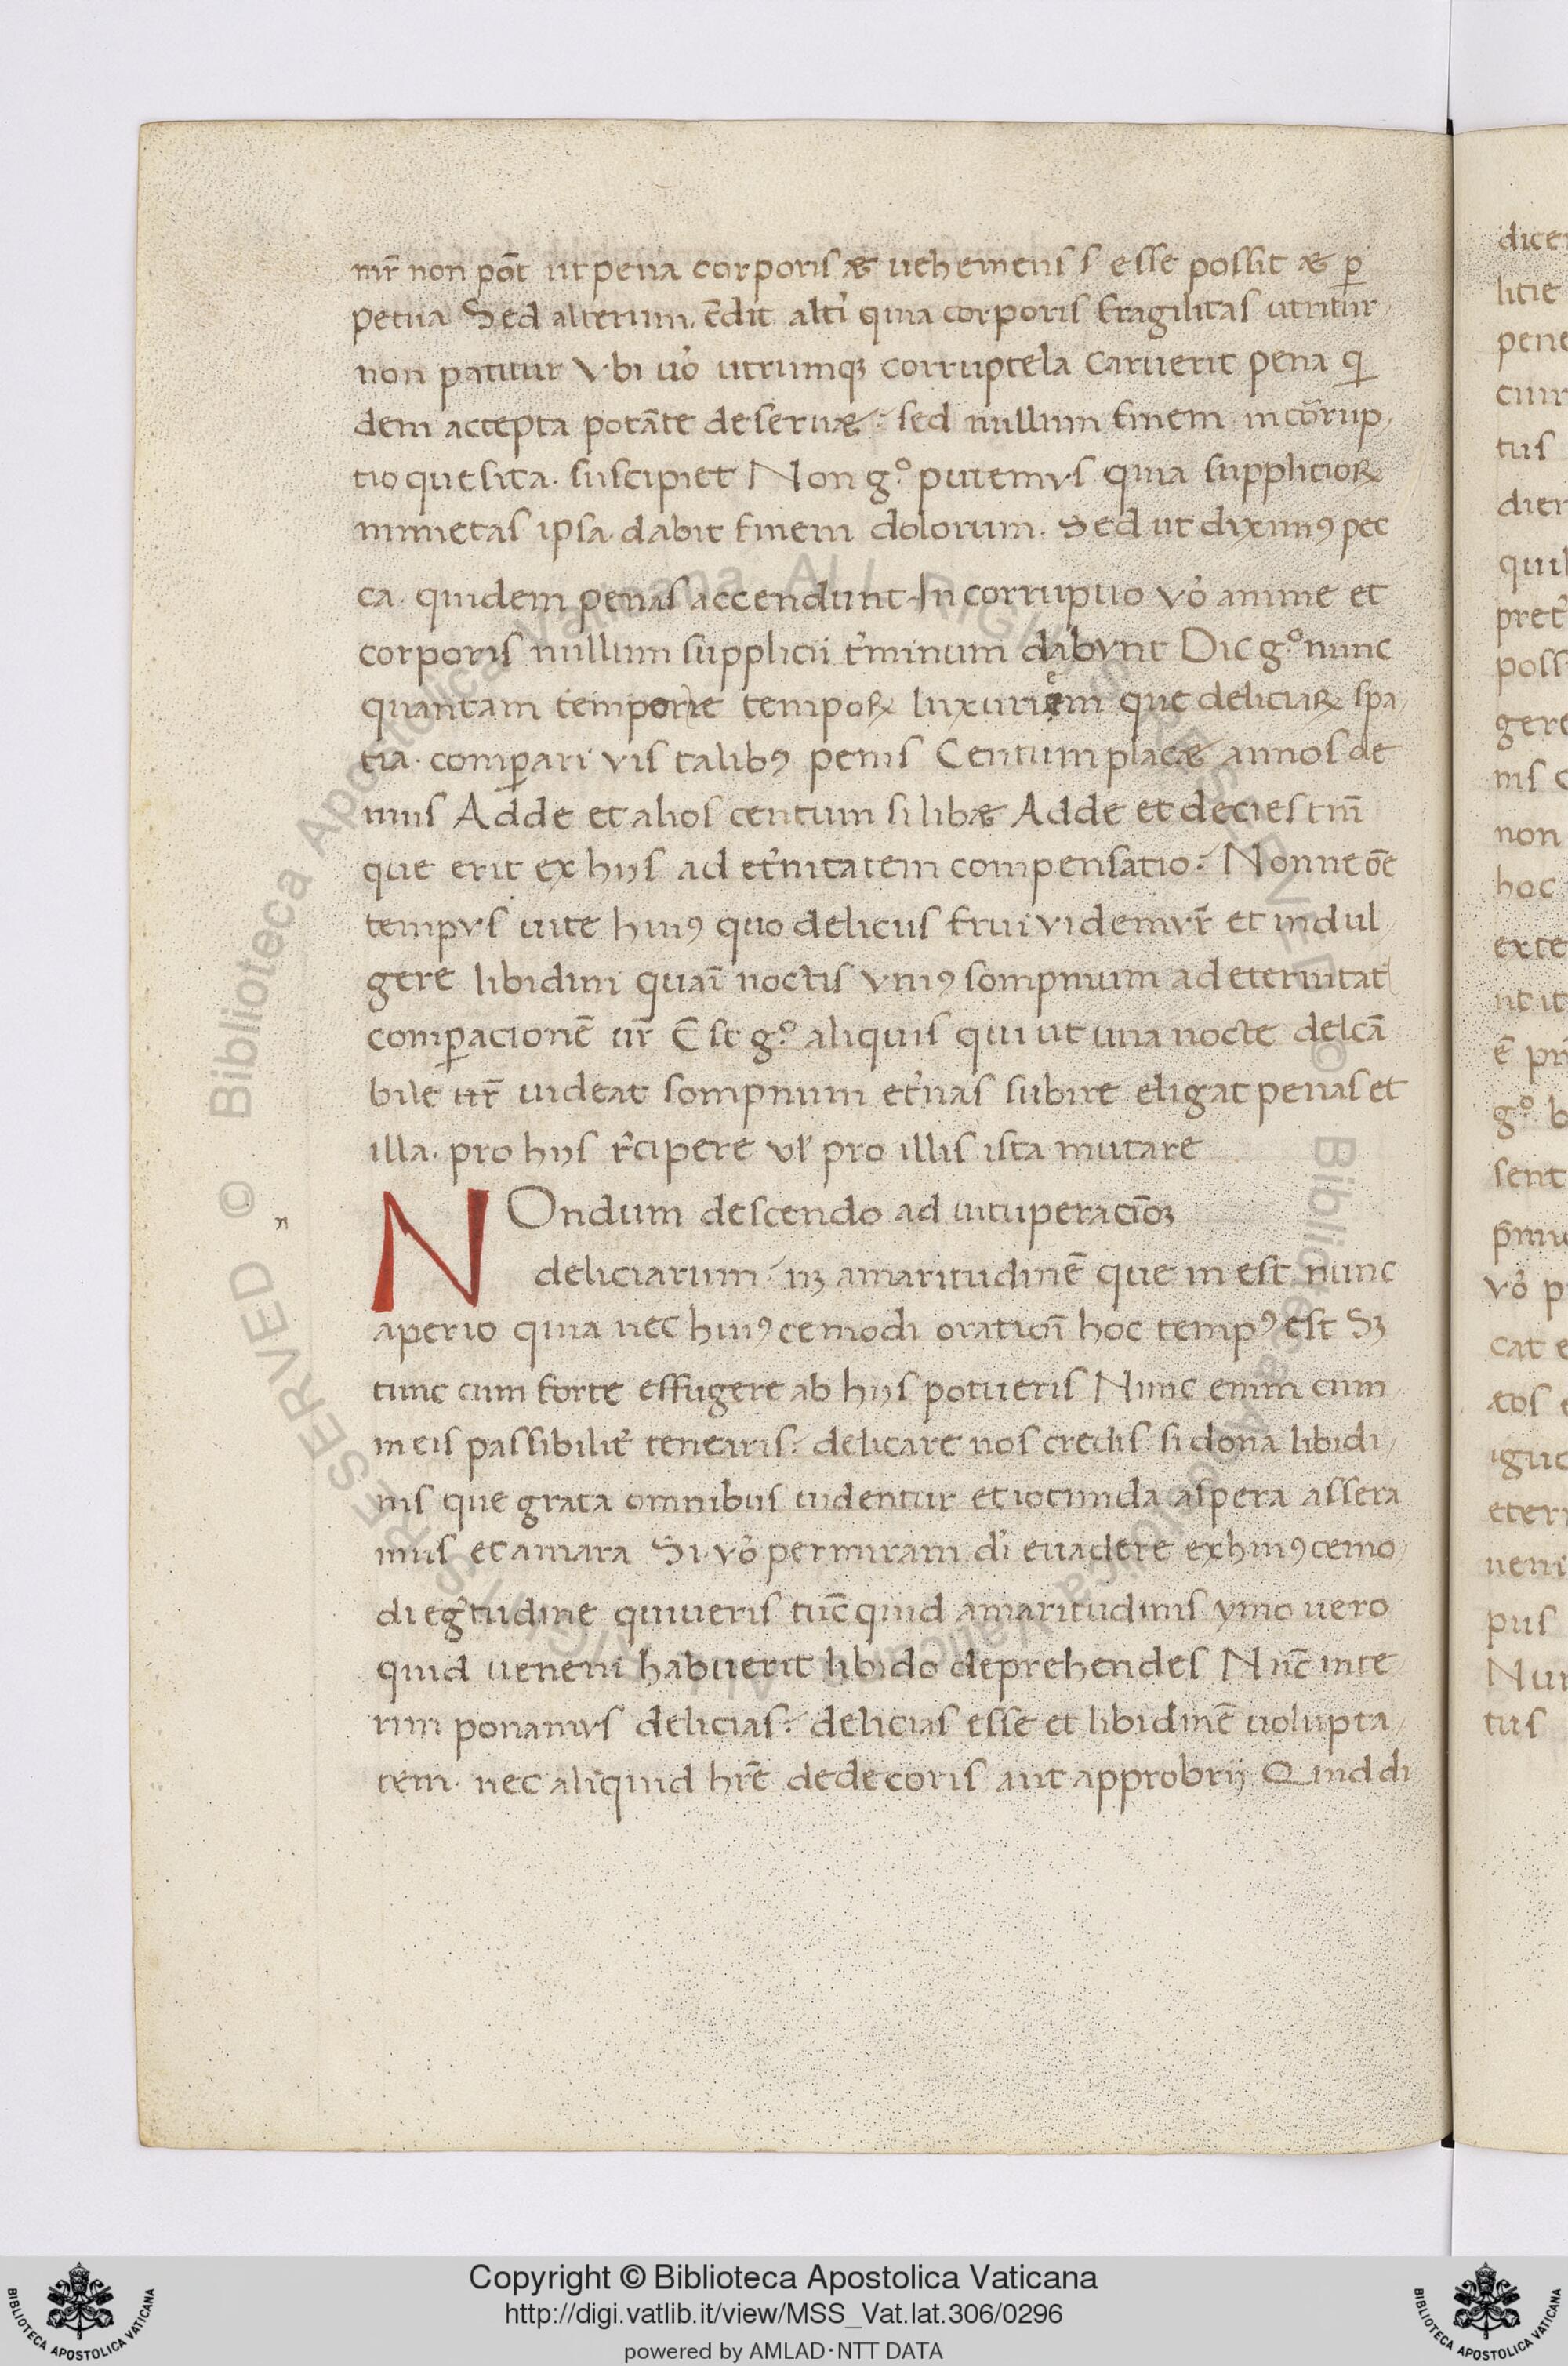 mr̄ non pōt ut pena corporis & uehemens s esse possit & ꝑ
petua Sed alterum. c̄dit alti͛ quia corporis fragilitas utritur
non patitur Vbi uo͛ utrumqꝫ corruptela caruerit pena q̨
dem accepta potāte deseruæ: sed nullum finem incōrup,
tio quesita. suscipiet Non g.º putemvs quia supplicioꝝ
nimietas ipsa. dabit finem dolorum. Sed ut diximꝯ pec
ca. quidem penas accendunt. Incorruptio vo͛ anime et
corporis nullum supplicii t͛minum dabvnt Dic g.º nunc
quantam temporie tempoꝝ luxuriem que deliciaꝝ spa,
tia. comꝑari vis talibꝯ penis Centum placæ annos de
mus Adde et alios centum si libæ Adde et decies tm̄
que erit ex hijs ad et͛nitatem compensatio: Nonne ōe
tempvs uite huiꝯ quo deliciis frui videmvr̄ et indul
gere libidini quaī noctis vniꝯ sompnium ad eternitat
comꝑacionē ur̄ Est g.º aliquis qui ut una nocte delcā
bile ur̄ uideat sompnium et͛nas subire eligat penas et
illa. pro hijs r͛cipere vl̕ pro illis ista mutare
NOndum descendo ad uituperaciōꝫ
deliciarum: nꝫ amaritudinē que in est nunc
aperio quia nec huiꝯcemodi oraticōi hoc tempꝯ est Sꝫ
tunc cum forte effugere ab hijs potueris Nunc enim cum
in eis passibilit͛ tenearis: delicare nos credis si dona libidi,
nis que grata omnibus uidentur et iocunda aspera assera
mus et amara Si. vo͛ per miram di͛ euadere ex huiꝯcemo,
di eg͛tudine quiueris tūc quid amaritudinis ymo uero
quid ueneni habuerit libido deprehendes Nūc inte
rim ponamvs delicias: delicias esse et libidinē uolupta,
tem. nec aliquid hr̄e dedecoris aut approbrij Quid di
dice
litie
pene
cuir
tus
dier
quil
pret͛
poss
gere
nis c
non
hoc
exte
nt it
ē pri
g.º b
sent
vo͛ p
cat e
eos e
iguc
eteri
ueni
pus
Nur
tus
Copyright © Biblioteca Apostolica Vaticana
http://digi.vatlib.it/view/MSS_Vat.lat.306/0296
powered by AMLAD·NTT DATA
BIBLIOTECA APOSTOLICA VATICANA
BIBLIOTECA APOSTOLICA VATICANA